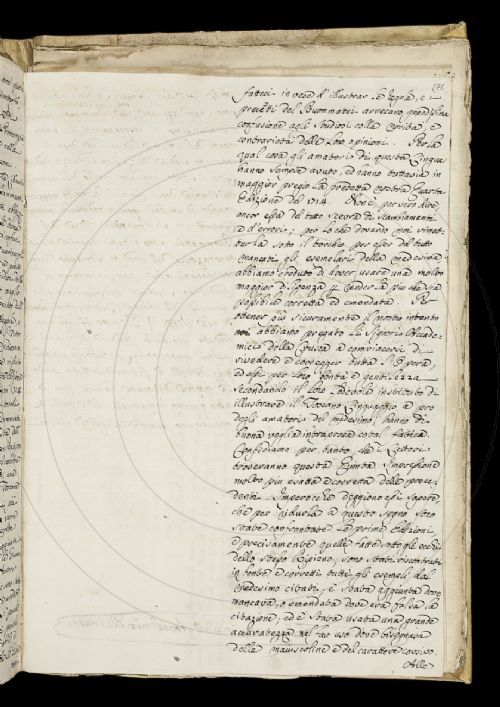 176
fattesi in vece d'illustrar le regole, e i
precetti del Buommattei arrecano grandissima
confusione agli studiosi colla varietà, e
contrarietà delle loro opinioni. Per la
qual cosa gli amatori di questa Lingua
hanno sempre avuto, ed hanno tuttavia in
maggior pregio la predetta nostra Quarta
Edizione del 1714. Non è per vero dire
ancor essa del tutto scevra di scambiamenti
e d'errori; per lo che dovendo noi rimet-
terla sotto il torchio per esser del tutto
mancati gli esemplari della medesima,
abbiamo creduto di dover usare una molto
maggior diligenza per render la più che sia
possibile corretta ed emendata. Per
ottener più sicuramente il nostro intento
noi abbiamo pregato li Signori Accade-
mici della Crusca a compiacersi di
rivedere e correggere tutta l'Opera,
ed essi per loro bontà e gentilezza
secondando il loro lodevole instituto di
illustrare il Toscano Linguaggio a pro
degli amatori del medesimo, hanno di
buona voglia intrapresa cotal fatica.
Confidiamo per tanto che i Lettori
troveranno questa Quinta Impressione
molto più esatta e corretta delle prece-
denti. Imperocchè deggiono essi sapere
che per ridurla a questo segno sono
state confrontate le prime Edizioni,
e precisamente quelle fatte sotto gli occhi
dello stesso, sono stati riscontrati
in fonte e corretti tutti gli esempli dal
medesimo citati, è stata aggiunta dove
mancava, o emendata dove era falsa la
citazione; ed è stata usata una grande
accuratezza nel far uso dove bisognava
delle maiuscoline e del carattere corsivo.
Alle